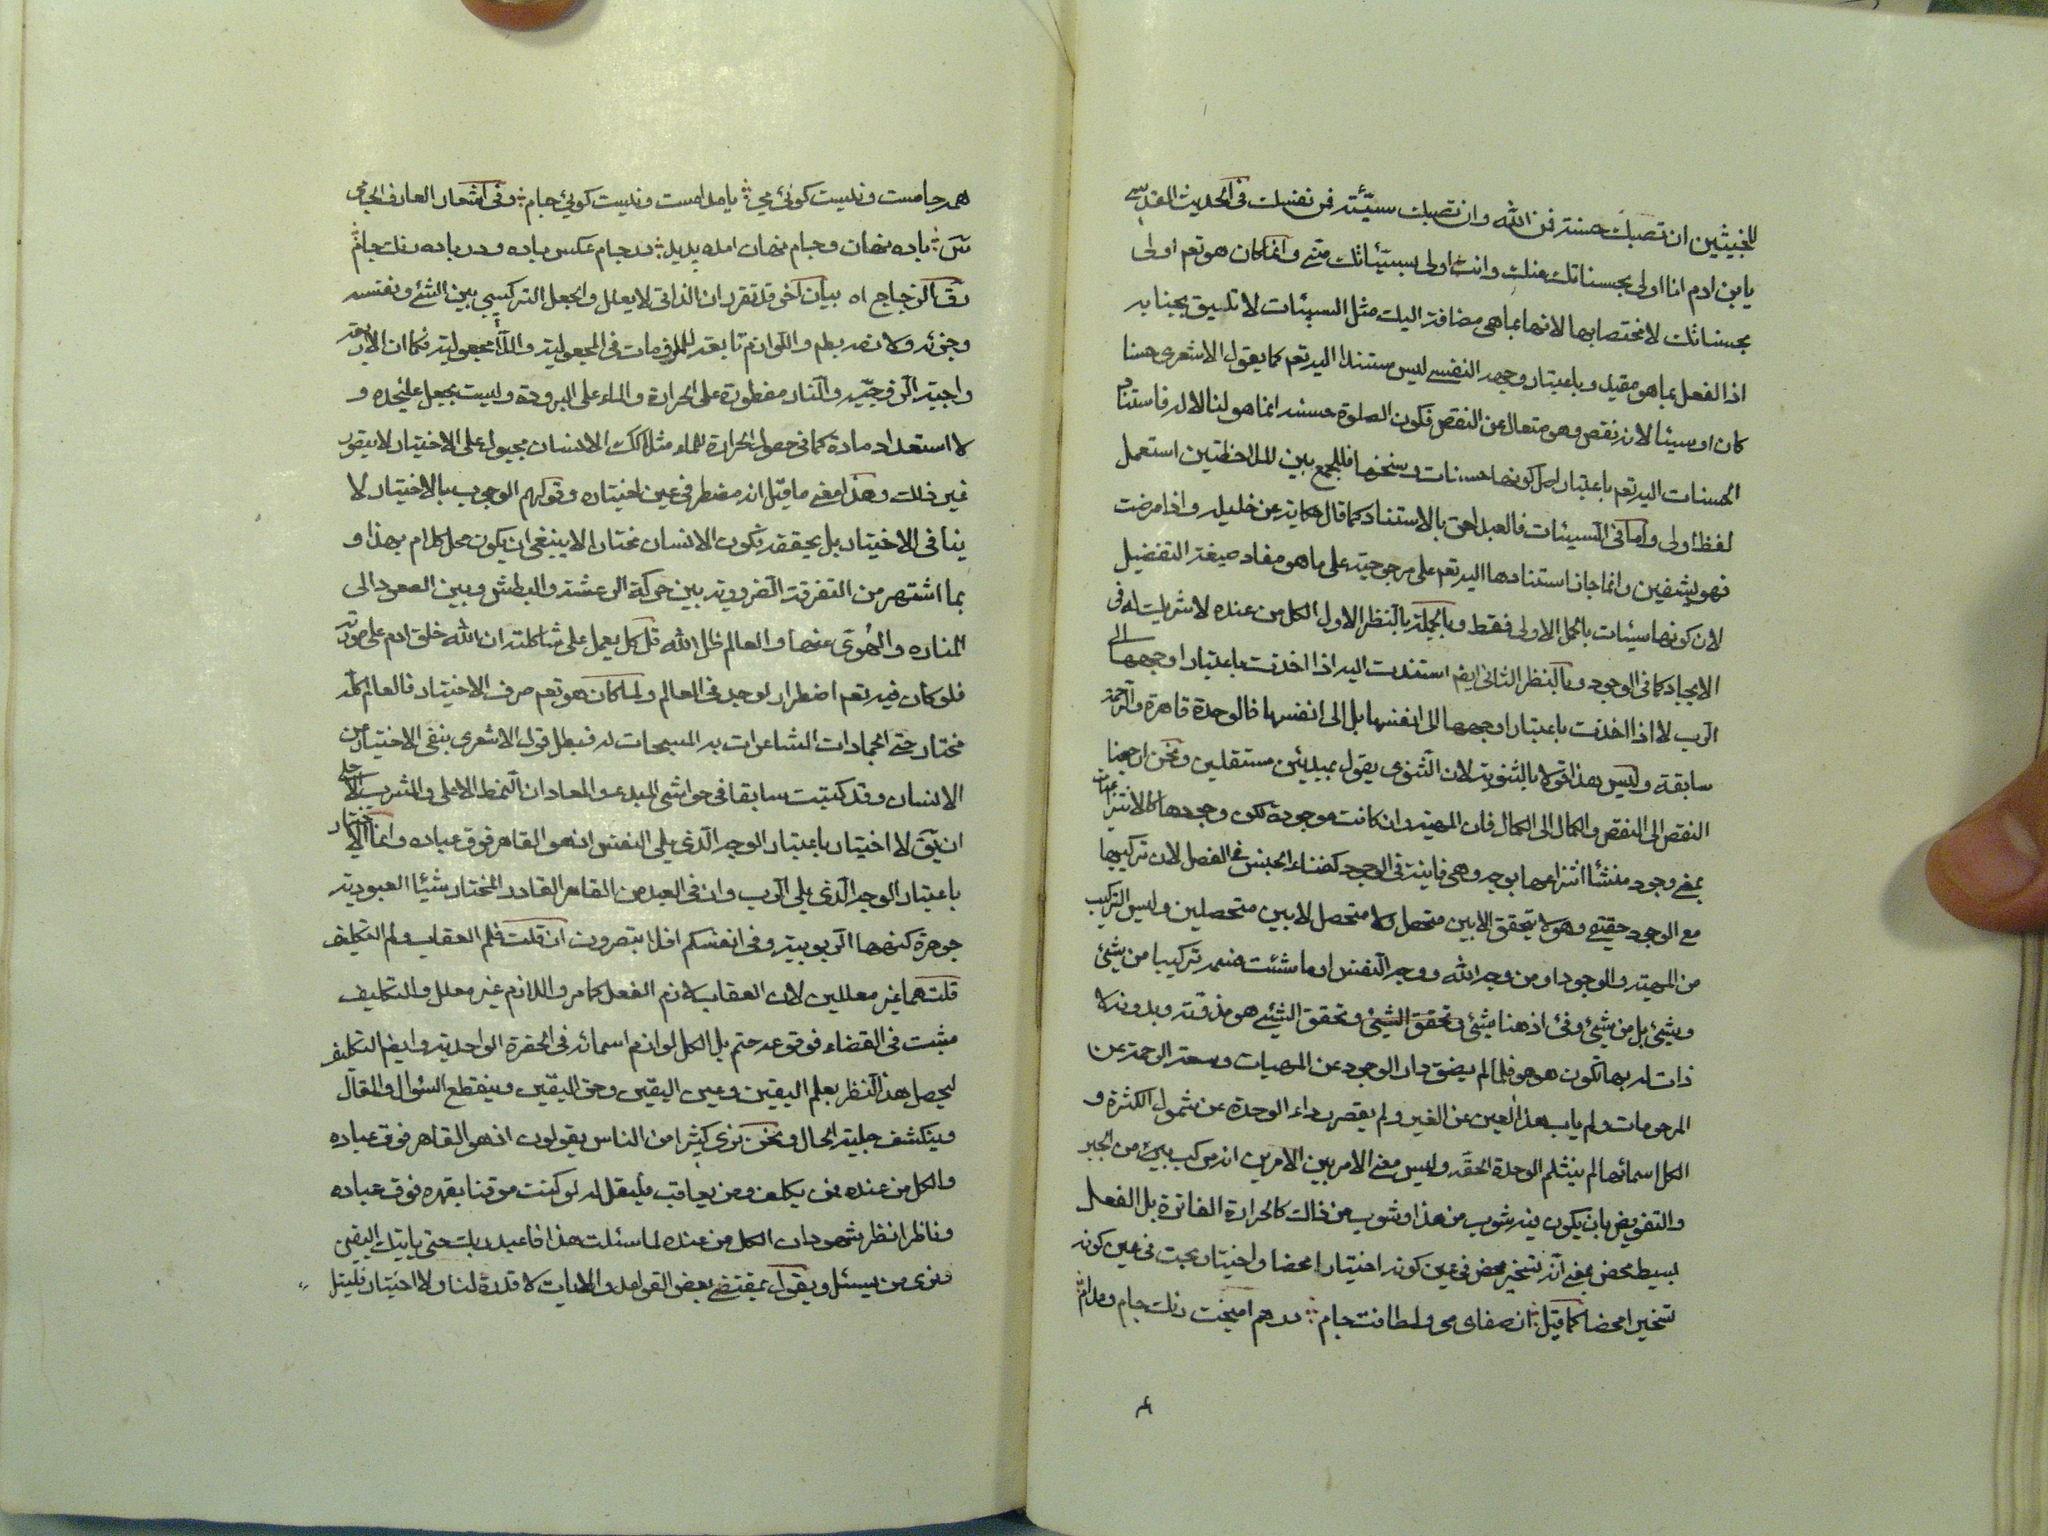 للخبيثين ان تصبك حسنة فمن الله وان تصبك سيئة فمن نفسك فى الحديث القدسى
يابن ادم انا اولى بحسناتك منك وانت اولى بسيئاتك منى وانما كان هو تعم اولى
بحسناتك لا نختص بها لانها بما هى مضافة اليك مثل السيئات لا تليق بجنابه
اذ الفعل بما هو مقيد وباعتبار وجهه النفسى ليس مستندا اليه تعم كما يقول الاشعرى حسنا
كان او سيئا لانه نقص وهو متعال عن النقص فكون الصلوة حسنة انما هو لنا لا له فاستناد
الحسنات اليه تعم باعتبار اصل كونها حسنات وسنخها فللجمع بين الملاحظتين استعمل
لفظ اولى واما فى السيئات فالعبد احق بالاستناد كما قال حكاية عن خليله واذا مرضت
فهو يشفين وانما جاز استنادها اليه تعم على مرجوحية على ما هو مفاد صيغة التفضيل
لان كونها سيئات بالحمل الاولى فقط وبالجملة بالنظر الاول الكل من عنده لا شريك له فى
الايجاد كما فى الوجود وبالنظر الثانى ايضا استندت اليه اذا اخذت باعتبار اوجهها الى
الرب لا اذا اخذت باعتبار اوجهها الى انفسها بل الى انفسها فالوحدة قاهرة والرحمة
سابقة وليس هذا قولا بالثنوية لان الثنوى يقول بمبدئين مستقلين ونحن ارجعنا
النقص الى النقص والكمال الى الكمال فان المهية وان كانت موجودة لكن وجودها كالانتزاعيات
بمعنى وجود منشأ انتزاعها بوجه وهى فانية فى الوجود كفناء الجنس فى الفصل لان تركيبها
مع الوجود حقيقى وهو لا يتحقق الا بين متحصل ولا متحصل لا بين متحصلين وليس التركيب
من المهية والوجود او من وجه الله ووجه النفس او ما شئت فسمه تركيبا من شيئ
وشيئ بل من شيئ وفيئ اذ هنا شيئ وتحقق الشيئ وتحقق الشيئ هو مذوقته وبدونه لا
ذات له بها تكون هو هو فلما لم يضق دار الوجود عن المهيات وسعة الرحمة عن
المرحومات ولم ياب هذا العين عن الغير ولم يقصر رداء الوحدة عن شمول الكثرة و
الكل اسمائها لم ينثلم الوحدة الحقة وليس معنى الامر بين الامرين انه مركب بيئ من الجبر
والتفويض بان يكون فيه شوب من هذا وشوب من ذاك كالحرارة الفاترة بل الفعل
بسيط محض بمعنى انه تسخير محض فى عين كونه اختيارا محضا واختيار بحت فى عين كونه
تسخيرا محضا كما قيل از صفاى مى ولطافت جام درهم اميخت رنك جام ومدام
همه جامست ونيست كوئى مى يا مدامست ونيست كوئى جام وفى اشعار العارف الجامى
باده نهان وجام نهان امده پديد در جام عكس باده ودر باده رنك جام
رق الزجاج اه بيان اخر قد تقرر ان الذاتى لا يعلل والجعل التركيبى بين الشئ ونفسه
وجزئه ولازمه بط واللوازم تابعة للملزومات فى المجعولية واللامجعولية فكما ان الاربعة
واجبة الزوجية والنار مفطورة على الحرارة والماء على البرودة وليست بجعل عليحده و
لا استعداد مادة كما فى حصول الحرارة للماء مثلا كذلك الانسان مجبول على الاختيار لا يتصور
غير ذلك وهذا معنى ما قيل انه مضطر فى عين اختياره وقولهم الوجوب بالاختيار لا
ينافى الاختيار بل يحققه فكون الانسان مختارا لا ينبغى ان يكون محل كلام بهذا و
بما اشتهر من التفرقة الضرورية بين حركة الرعشة والبطش وبين الصعود الى
المناره والهوى عنها والعالم ظل الله قل كل يعمل على شاكلته ان الله خلق ادم على صورته
فلو كان فيه تعم اضطرار لوجد فى العالم ولما كان هو تعم صرف الاختيار فالعالم كله
مختار حتى الجمادات الشاعرات به المسبحات له فبطل قول الاشعرى بنفى الاختيار من
الانسان وقد كتبت سابقا فى حواشى المبدء والمعاد ان النمط الاعلى والشرب الاحلى
ان يق لا اختيار باعتبار الوجه الذى يلى النفس اذ هو القاهر فوق عباده وانما الاختيار
باعتبار الوجه الذى يلى الرب وان فى العبد من القاهر القادر المختار شيئا العبودية
جوهرة كنهها الربوبية وفى انفسكم افلا تبصرون ان قلت فلم العقاب ولم التكليف
قلت هما غير معللين لان العقاب لازم الفعل كما مر واللازم غير معلل والتكليف
مثبت فى القضاء فوقوعه حتم بل الكل لوازم اسمائه فى الحضرة الواحدية وايضا التكليف
ليحصل هذا النظر بعلم اليقين وعين اليقين وحق اليقين وينقطع السؤال والمقال
وينكشف جلية الحال ونحن نرى كثيرا من الناس يقولون اذ هو القاهر فوق عباده
والكل من عنده فمن يكلف ومن يعاقب فليقل له لو كنت موقنا بقهره فوق عباده
وناظرا نظر شهود ان الكل من عنده لما سئلت هذا فاعبد ربك حتى ياتيك اليقين
ونرى من يسئل ويقول بمقتضى بعض القواعد والايات لا قدرة لنا ولا اختيار فليتل